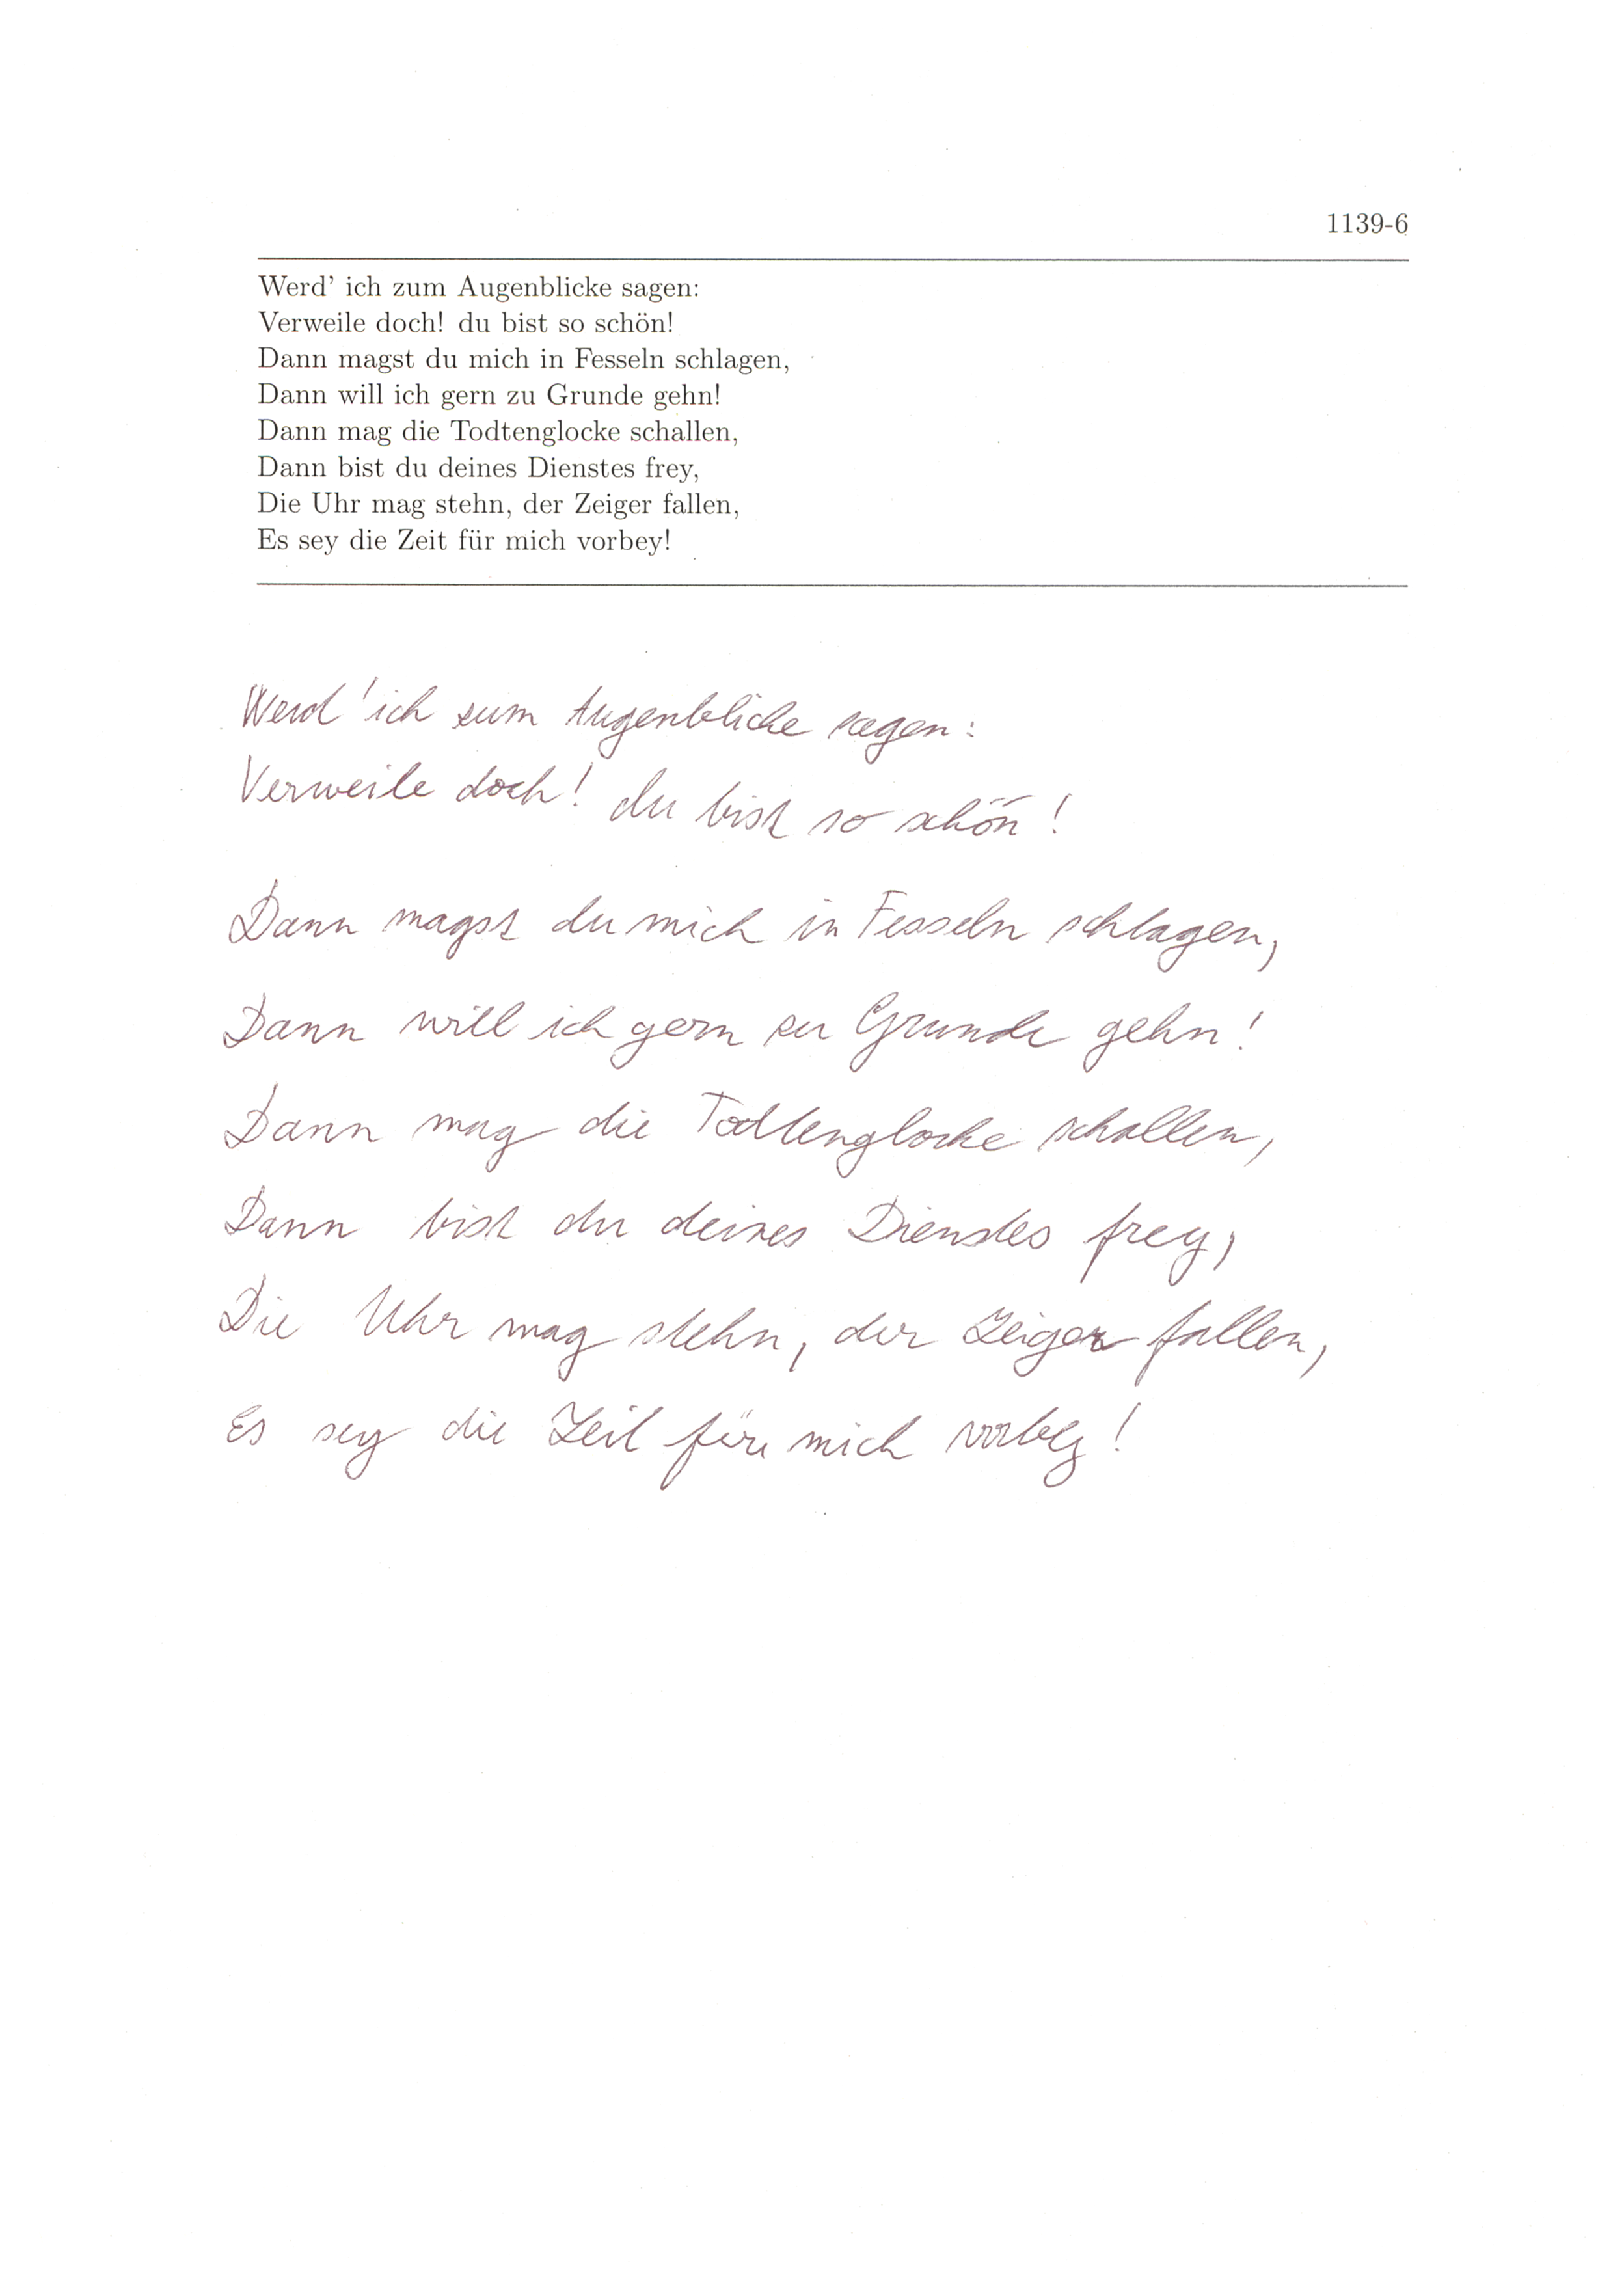 1139-6
Werd' ich zum Augenblicke sagen:
Verweile doch! du bist so schön!
Dann magst du mich in Fesseln schlagen,
Dann will ich gern zu Grunde gehn!
Dann mag die Todtenglocke schallen,
Dann bist du deines Dienstes frey,
Die Uhr mag stehn, der Zeiger fallen,
Es sey die Zeit für mich vorbey!
Werd' ich zum Augenblicke sagen:
Verweile doch! du bist so schön!
Dann magst du mich in Fesseln schlagen,
Dann will ich gern zu Grunde gehn!
Dann mag die Todtenglocke schallen,
Dann bist du deines Dienstes frey,
Die Uhr mag stehn, der Zeiger fallen,
Es sey die Zeit für mich vorbey!